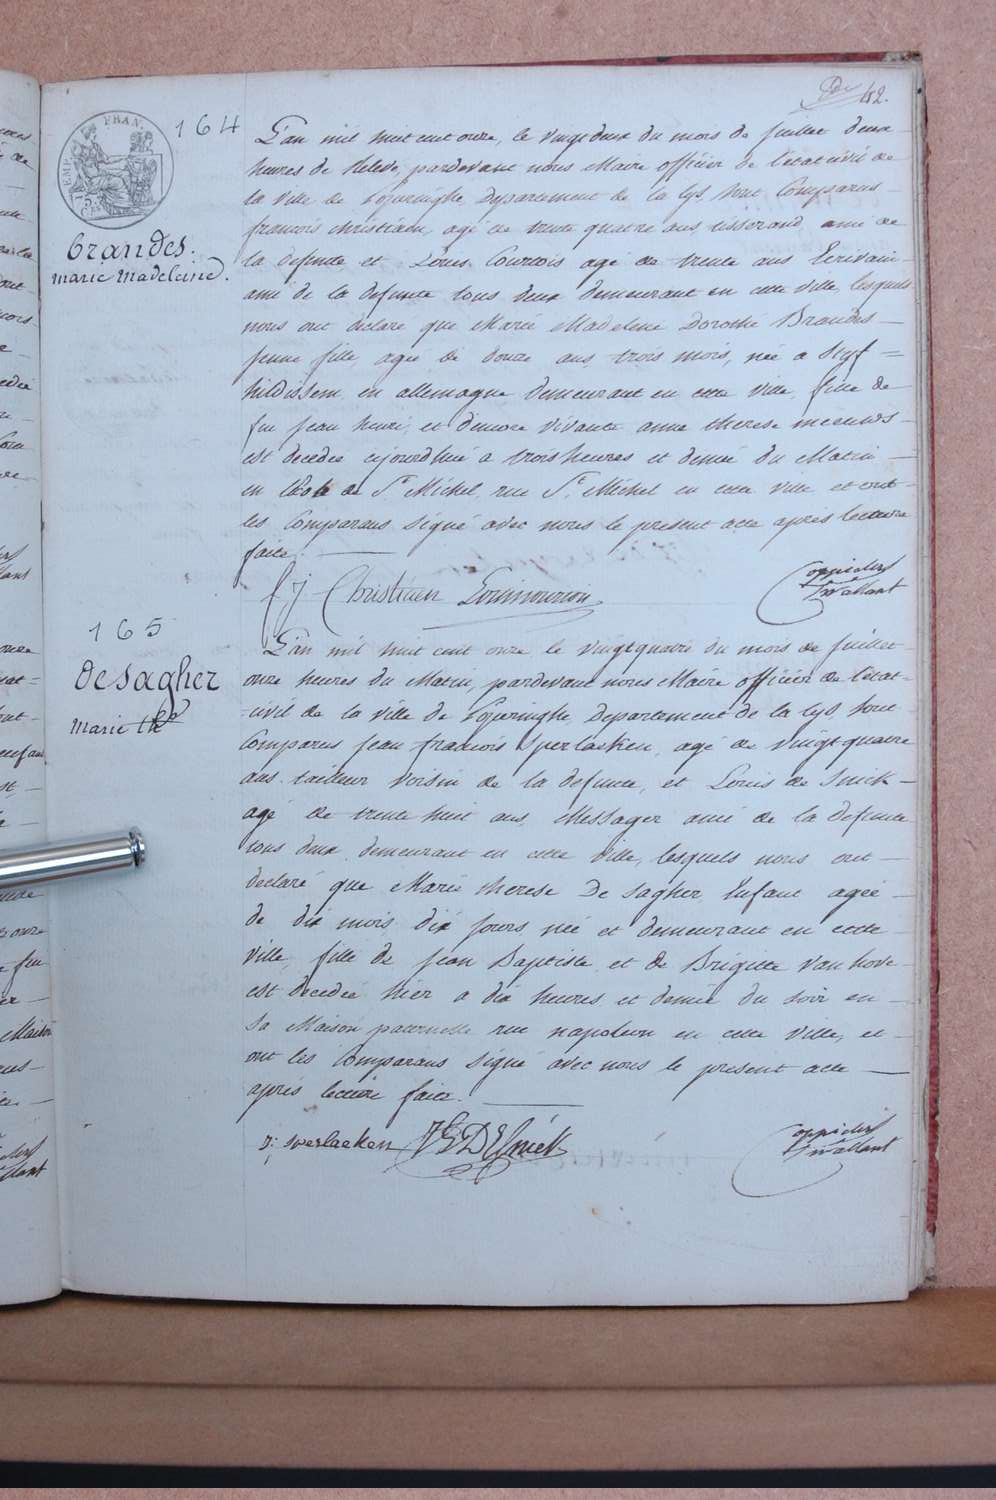 42.
EMP. FRAN.
75
CES
164
Brandes.
marie Madeleine.
L'an mil huit cent onze, le vingt deux du mois de juillet deux
heures de Relevé, pardevant nous Maire officier de l'état civil de
la ville de Poperinghe Département de la Lys, sont Comparus
françois christiaen, agé de trente quatre ans tisserand, ami de
la defunte et Louis Courtois agé de trente ans Ecrivain
ami de la defunte tous deux demeurant en cette ville, lesquels
nous ont declaré que Marie Madelene Dorothé Brandes —
jeune fille, agée de douze ans, trois mois, née a
hildissem, en allemagne demeurant en cette ville, fille de
feu jean henri, et d'encore vivante anne therese meeuws —
est decedée ajourdhui a trois heures et demie du Matin —
en l'Ecole de St Michel, rue St Michel en cette ville et ont
les Comparans signé avec nous le present acte après lecture
faite. —
f j Christiaen
165
De Sagher
Marie the
L'an mil huit cent onze le vingt quatre du mois de juillet
onze heures du Matin, pardevant nous Maire officier de l'état
civil de la ville de Poperinghe, Departement de la Lys, sont
Comparus jean francois Sverlaeken, agé de vingt quatre
ans tailleur voisin de la defunte, et Louis de Snick —
agé de trente huit ans, Messager ami de la defunte
tous deux demeurant en cette ville, lesquels nous ont —
declaré que Marie therese De Sagher, Enfant agée —
de dix mois dix jours née et demeurant en cette
ville, fille de jean Baptiste et de Brigitte Vanhove
est decedée hier a dix heures et demie du soir en —
sa Maison paternelle rue napoleon en cette ville, et —
ont les Comparans signé avec nous le present acte —
après lecture faite. —
j: sverlaeken De Snick